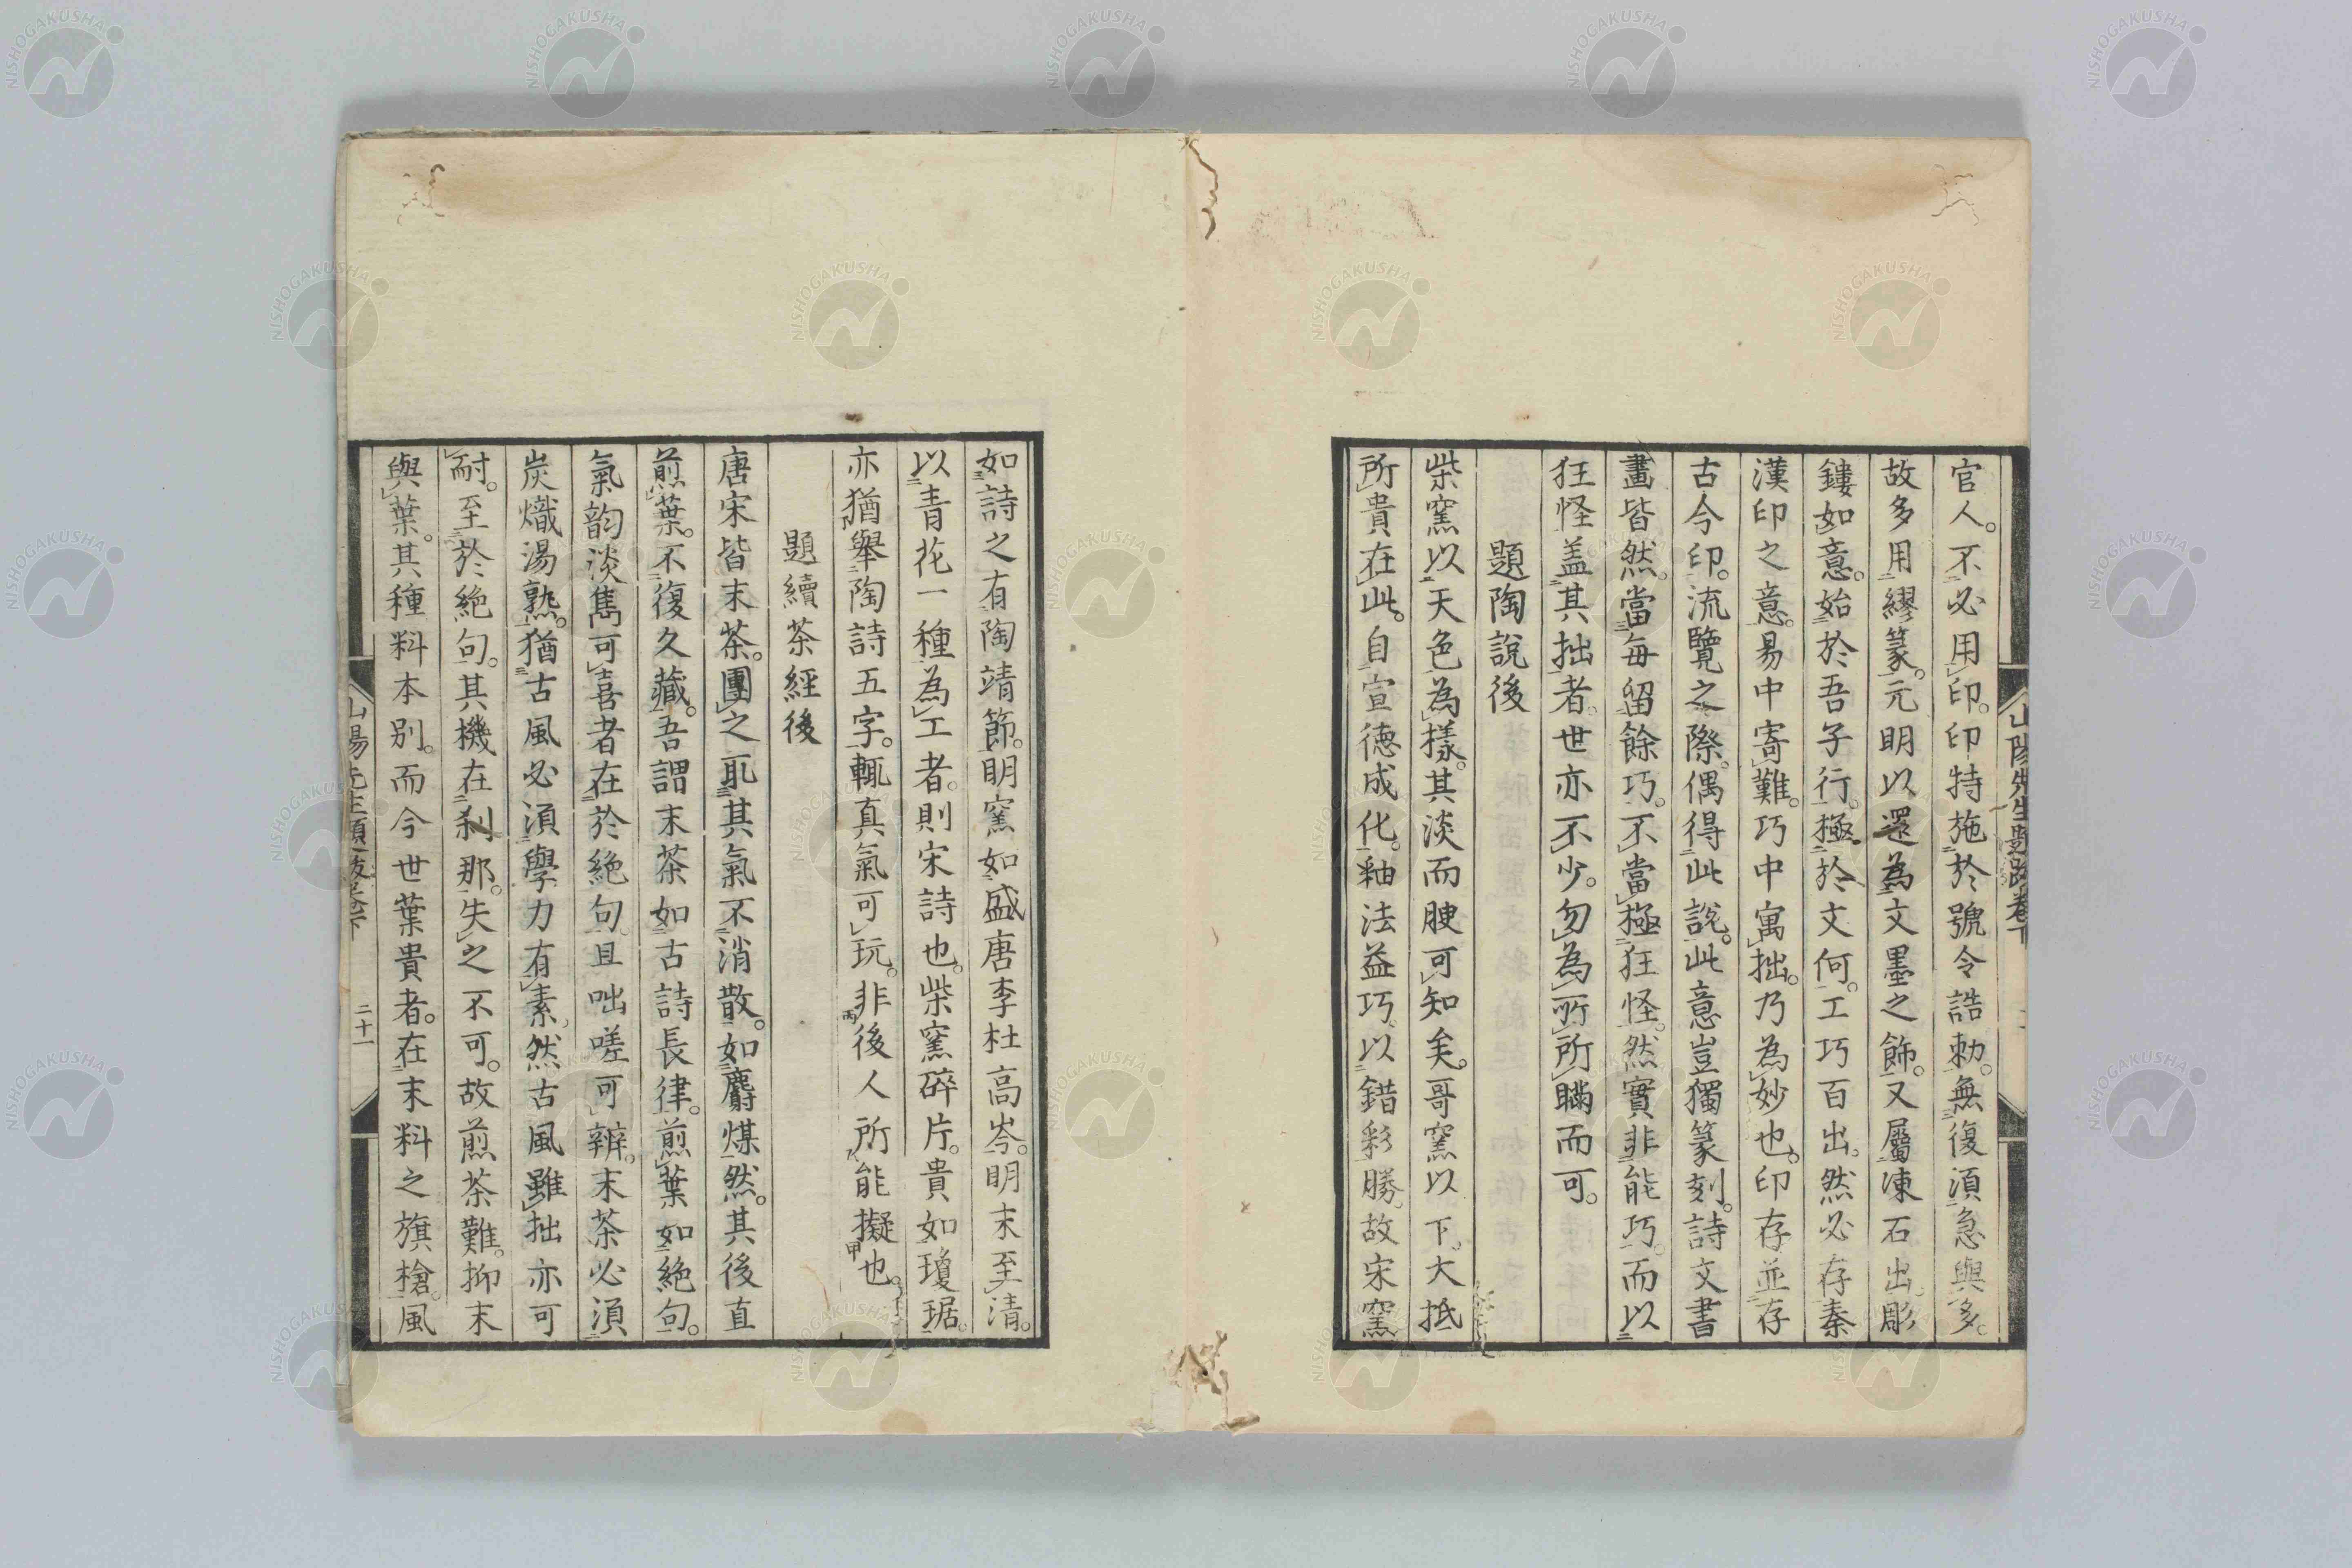 官人。不必用印。印特施於號令誥勅。無復須急與多。
故多用繆篆。元明以還為文墨之飾。又屬凍石出彫
鏤如意。始於吾子行。極於文何。工巧百出。然必存秦
漢印之意。易中寄難。巧中寓拙。乃為妙也。印存並存
古今印。流覽之際。偶得此說。此意豈獨篆刻。詩文書
畫皆然。當每留餘巧。不當極狂怪。然實非能巧。而以
狂怪盖其拙者。世亦不少。勿為所瞞而可。
題陶說後
柴窯以天色為樣。其淡而腴可知矣。哥窯以下。大抵
所貴在此。自宣德成化。釉法益巧。以錯彩勝。故宋窯
如詩之有陶靖節。明窯如盛唐李杜高岑。明末至清。
以青花一種為工者。則宋詩也。柴窯碎片。貴如瓊琚。
亦猶舉陶詩五字。輒真氣可玩。非後人所能擬也。
題續茶經後
唐宋皆末茶。團之取其氣不消散。如麝煤然。其後直
煎葉。不復久藏。吾謂末茶如古詩長律。煎葉如絕句。
氣韵淡雋可喜者在於絕句。且咄嗟可辨。末茶必須
炭熾湯熟。猶古風必須學力有素。然古風雖拙亦可
耐。至於絕句。其機在刹那。失之不可。故煎茶難。抑末
與葉。其種料本別。而今世葉貴者。在末料之旗槍。風
山陽先生題跋卷下
二十一
山陽先生題跋卷下
NISHOGAKUSHA